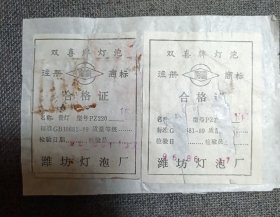 双喜牌灯泡
注册 商标
合格证
名称 普灯 型号PZ220
标准GB10681-89 质量等级
检验日期 检验员
潍坊灯泡厂
双喜牌灯泡
注册 商标
合格证
名 型号PZ2
标准 681-89 质量等级
检验日 检验员
潍坊灯泡厂